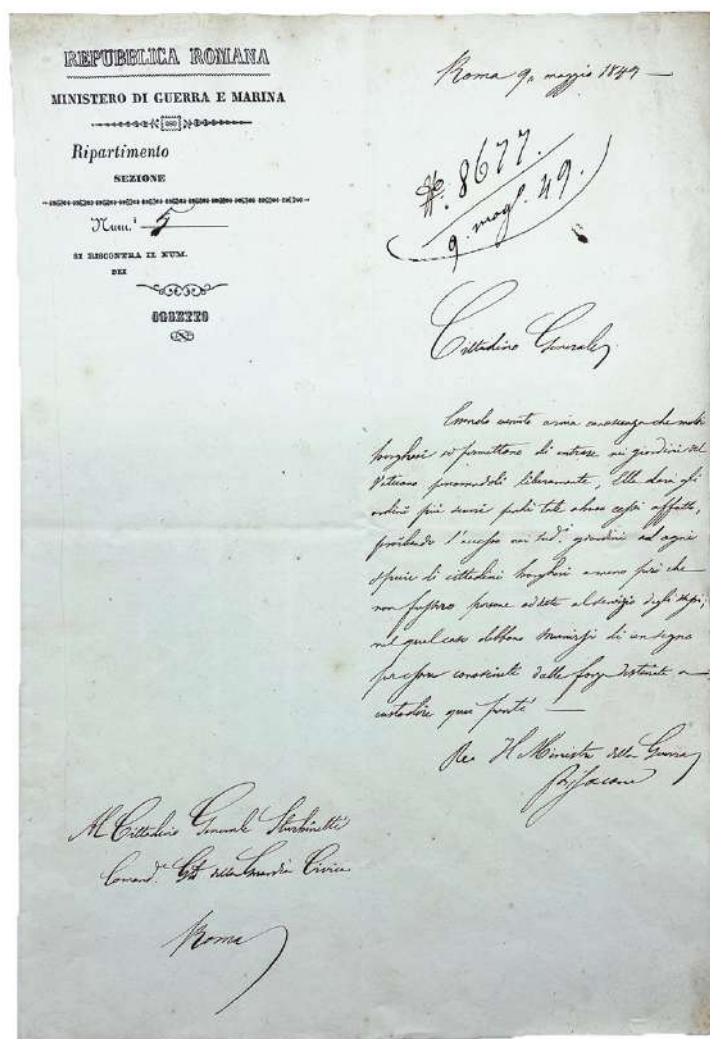 REPUBBLICA ROMANA
MINISTERO DI GUERRA E MARINA
Ripartimento
SEZIONE
Num.° 5
SI RISCONTRA IL NUM.
DEI
OGGETTO
Roma 9 maggio 1849
N. 8677.
9. magg. 49.
Cittadino Generale
Essendo venuto a mia conoscenza che molti
borghesi si permettono di entrare ne' giardini del
Vaticano liberamente, Ella darà gli
ordini più severi perché tale abuso cessi affatto,
proibendo l'accesso nei sud.i giardini ad ogni
specie di cittadini borghesi a meno poi che
non fossero persone addette al servizio degli stessi,
nel qual caso debbono munirsi di un segno
per esser conosciuti dalle forze destinate a
custodire que' posti
Per Il Ministro della Guerra
Al Cittadino Generale Sturbinetti
Comand.e G.le della Guardia Civica
Roma